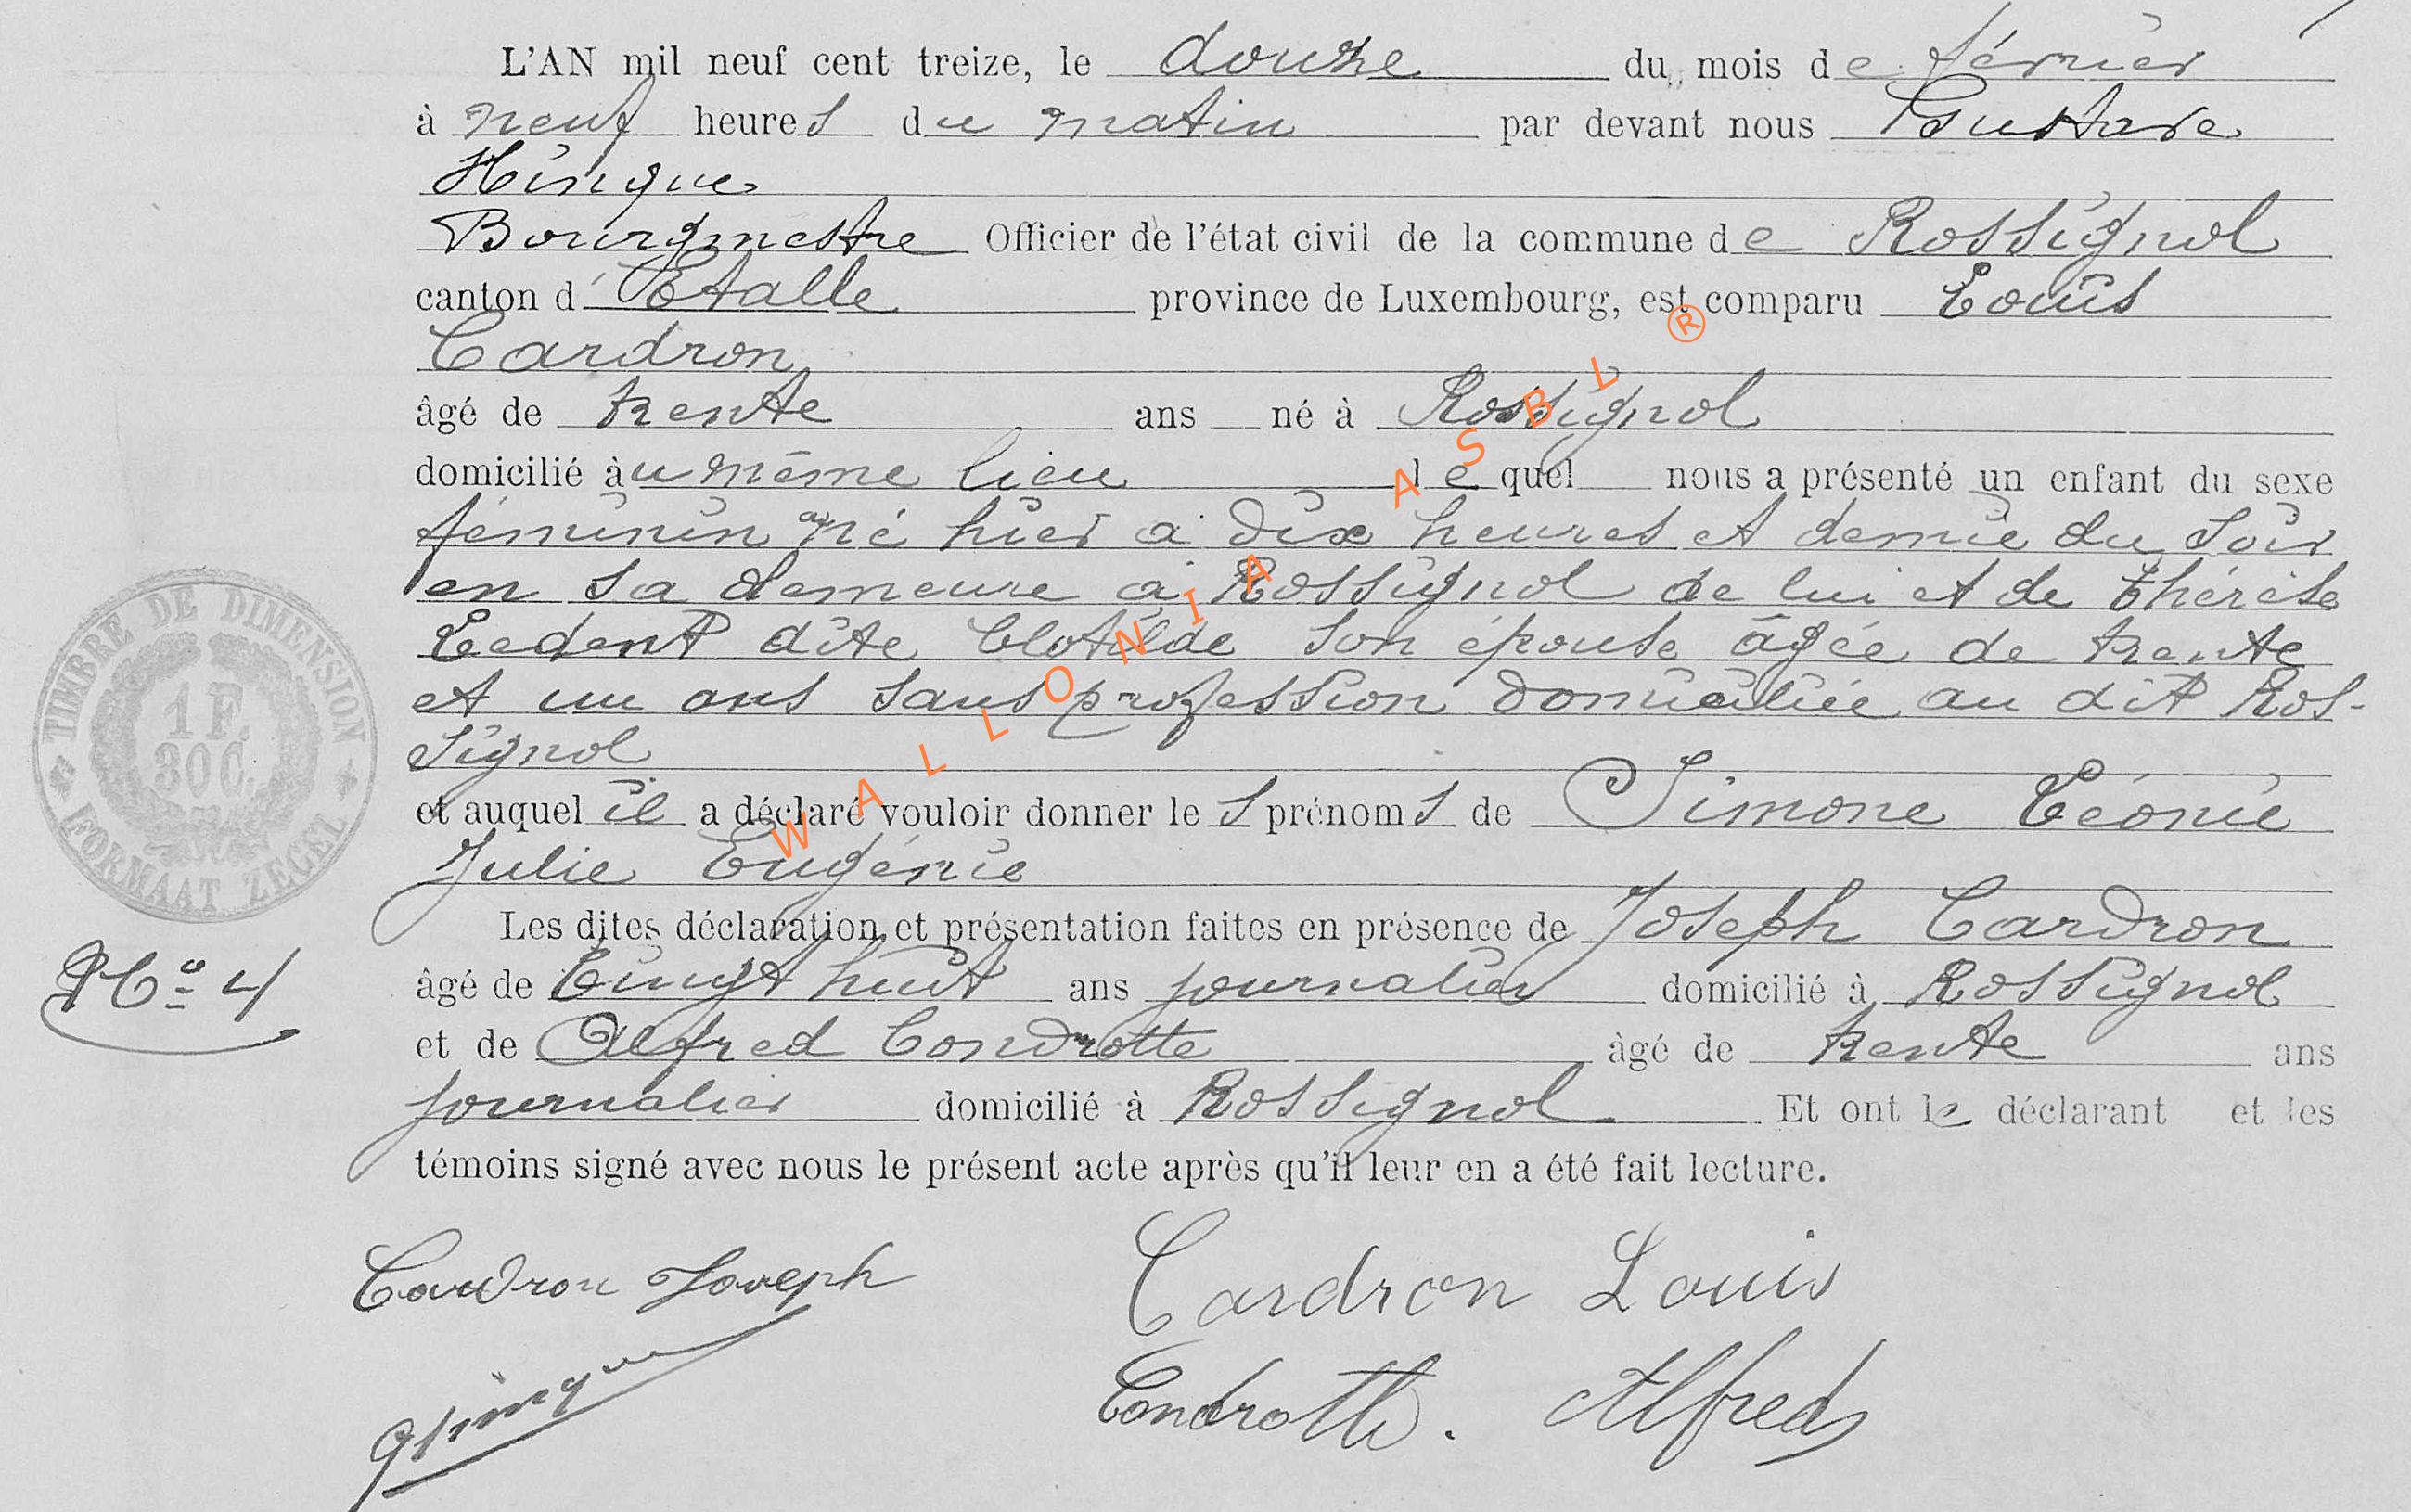 L'AN mil neuf cent treize, le douze du mois de février
à neuf heures du matin par devant nous Gustave
Hinque
Bourgmestre Officier de l'état civil de la commune de Rossignol
canton d'Etalle province de Luxembourg, est comparu Louis
Cardron
âgé de trente ans né à Rossignol
domicilié àu même lieu lequel nous a présenté un enfant du sexe
féminin né hier à dix heures et demie du soir
en sa demeure à Rossignol de lui et de Thérèse
Ledent dite Clotilde son épouse âgée de trente
et un ans sans profession domiciliée au dit Ros-
signol
et auquel il a déclaré vouloir donner les prénoms de Simone Léonie
Julie Eugénie
Les dites déclaration et présentation faites en présence de Joseph Cardron
âgé de vingt huit ans journalier domicilié à Rossignol
et de Alfred Condrotte âgé de trente ans
journalier domicilié à Rossignol Et ont le déclarant et les
témoins signé avec nous le présent acte après qu'il leur en a été fait lecture.
TIMBRE DE DIMENSION
1 F.
30 C.
FORMAAT ZEGEL
No 4
Cardron Joseph
Cardron Louis
GHinque
Condrotte. Alfred
WALLONIA ASBL ®